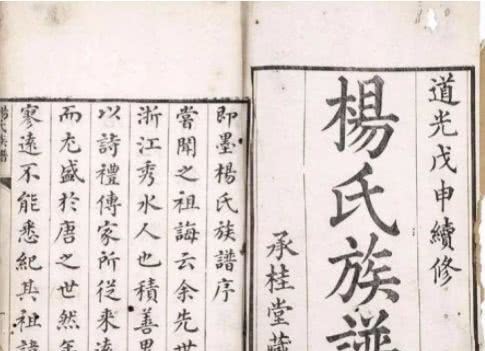 道光戊申續修
楊氏族譜
承桂堂藏
即墨楊氏族譜序
嘗聞之祖誨云余先世
浙江秀水人也積善
以詩禮傳家所從來遠
而尤盛於唐之世然年
寥遠不能悉紀其祖諱
楊氏族譜